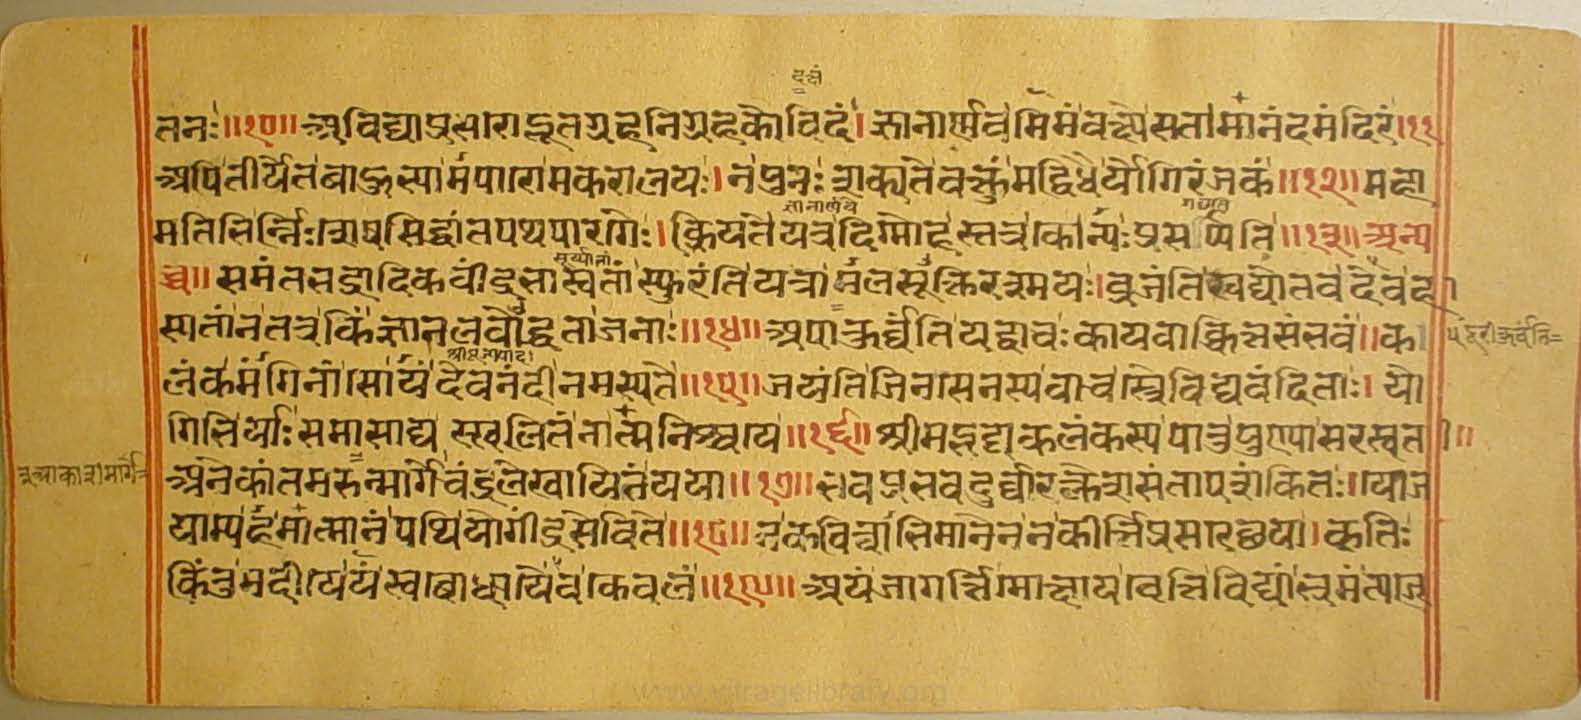 दक्षं
तनः॥१०॥ अविद्याप्रसरोद्भूतग्रहनिग्रहकोविदं। ज्ञानार्णवमिमं वक्ष्ये सतामानंदमंदिरं।११
अपि तीर्येत बाहुभ्यामपारो मकरालयः। न पुनः शक्यते वक्तुं मद्विधैर्योगिरंजकं॥१२॥ महा
ज्ञानार्णवे
मतिभिर्निःशेषसिद्धांतपथपारगैः। क्रियते यत्र दिग्मोहस्तत्र कोन्यः प्रसर्प्पति॥१३॥ अन्य
सूर्याणां
च्च॥ समंतभद्रादिकवींद्रभास्वतां स्फुरंति यत्रामलसूक्तिरश्मयः। व्रजंति खद्योतवदेव हा
स्यतां न तत्र किं ज्ञानलवोद्धता जनाः॥१४॥ अपाकुर्व्वंति यद्वाचः कायवाक्चित्तसंभवं॥ क
श्रीपूज्यपाद।
लंकमंगिनां सोयं देवनंदी नमस्यते॥१५॥ जयंति जिनसेनस्य वाचस्त्रैविद्यवंदिताः। यो
गिभिर्याः समासाद्य स्खलितं नात्मनिश्चये॥१६॥ श्रीमद्भट्टाकलंकस्य पातु पुण्या सरस्वती॥
अनेकांतमरुन्मार्गे चंद्रलेखायितं यया॥१७॥ भवप्रभवदुर्व्वारक्लेशसंतापशंकितः। योज
याम्यहमात्मानं पथि योगींद्रसेविते॥१८॥ न कवित्वाभिमानेन न कीर्त्तिप्रसारेच्छया। कृतिः
किंतु मदीयेयं स्वबोधायैव केवलं॥१९॥ अयं जागर्त्ति मोक्षाय वेत्ति विद्यां भ्रमं त्यज